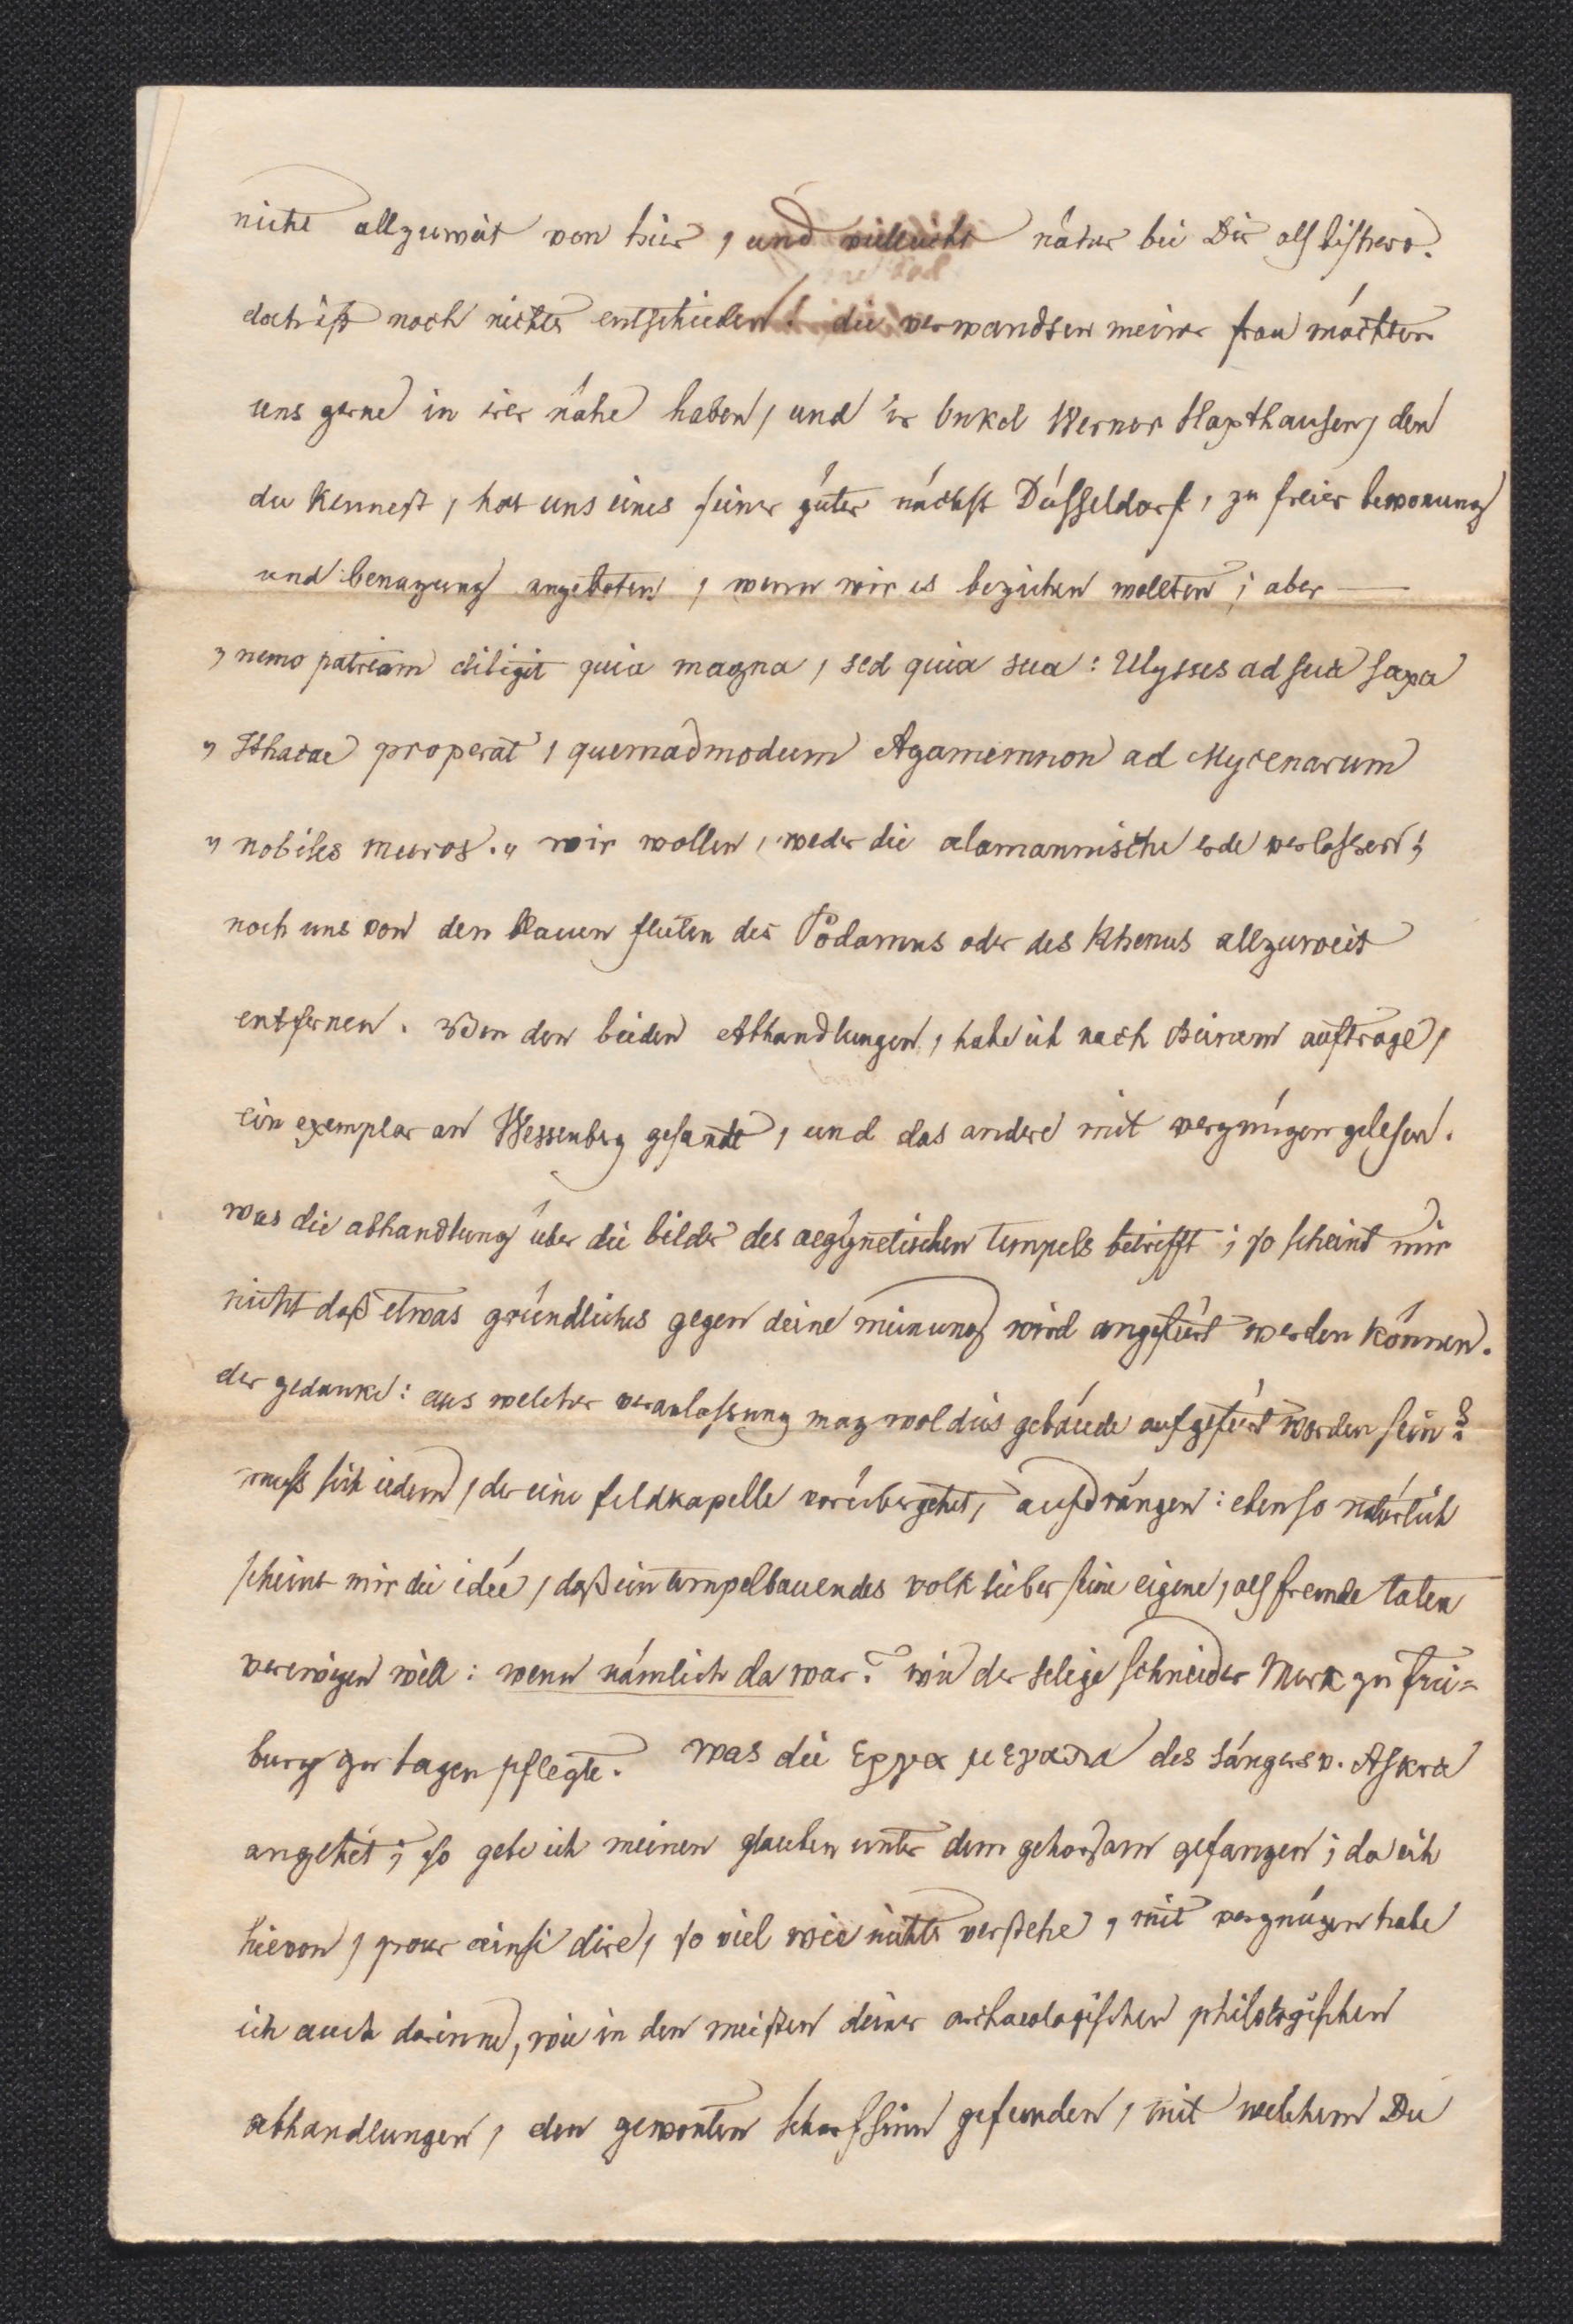 nicht allzuweit von hier, und vielleicht näher bei Dir als bishero.
doch ist noch nichts entschieden! die verwandten meiner frau möchten
uns gerne in irer nähe haben, und ir Onkel Werner Haxthausen, den
du kennest, hat uns eines seiner güter nächst Düsseldorf, zu freier bewonung
und benuzung angeboten, wenn wir es beziehen wollten; aber —
„ nemo patriam diligit quia magna, sed quia sua: Ulysses ad sua saxa
„ Ithacae properat, quemadmodum Agamemnon ad Mycenarum
„ nobiles muros. „ wir wollen, weder die alamannische erde verlassen,
noch uns von den blauen fluten des Podamus oder des Rhenus allzuweit
entfernen. Von den beiden Abhandlungen, habe ich nach Deinem auftrage,
ein exemplar an Wessenberg gesandt, und das andere mit vergnügen gelesen.
was die abhandlung über die bilder des aegynetischen tempels betrifft; so scheint mir
nicht daß etwas gründliches gegen deine meinung wird angefürt werden können.
der gedanke: aus welcher veranlassung mag wol dies gebäude aufgefürt worden sein?
muß sich iedem, der eine feldkapelle vorübergehet, aufdrängen: eben so natürlich
scheint mir die idée, daß ein tempelbauendes volk lieber seine eigene, als fremde taten
verewigen will: wenn nämlich da war? wie der selige schneider Merk zu Frei=
burg zu sagen pflegte. was die εργα μεγαλα des sängers v. Askra
angehet; so gebe ich meinen glauben unter dem gehorsam gefangen; da ich
hievon, pour ainsi dire, so viel wie nichts verstehe, mit vergnügen habe
ich auch darinne, wie in den meisten deiner archaeologischen philologischen
abhandlungen, den gewonten scharfsinn gefunden, mit welchem Du